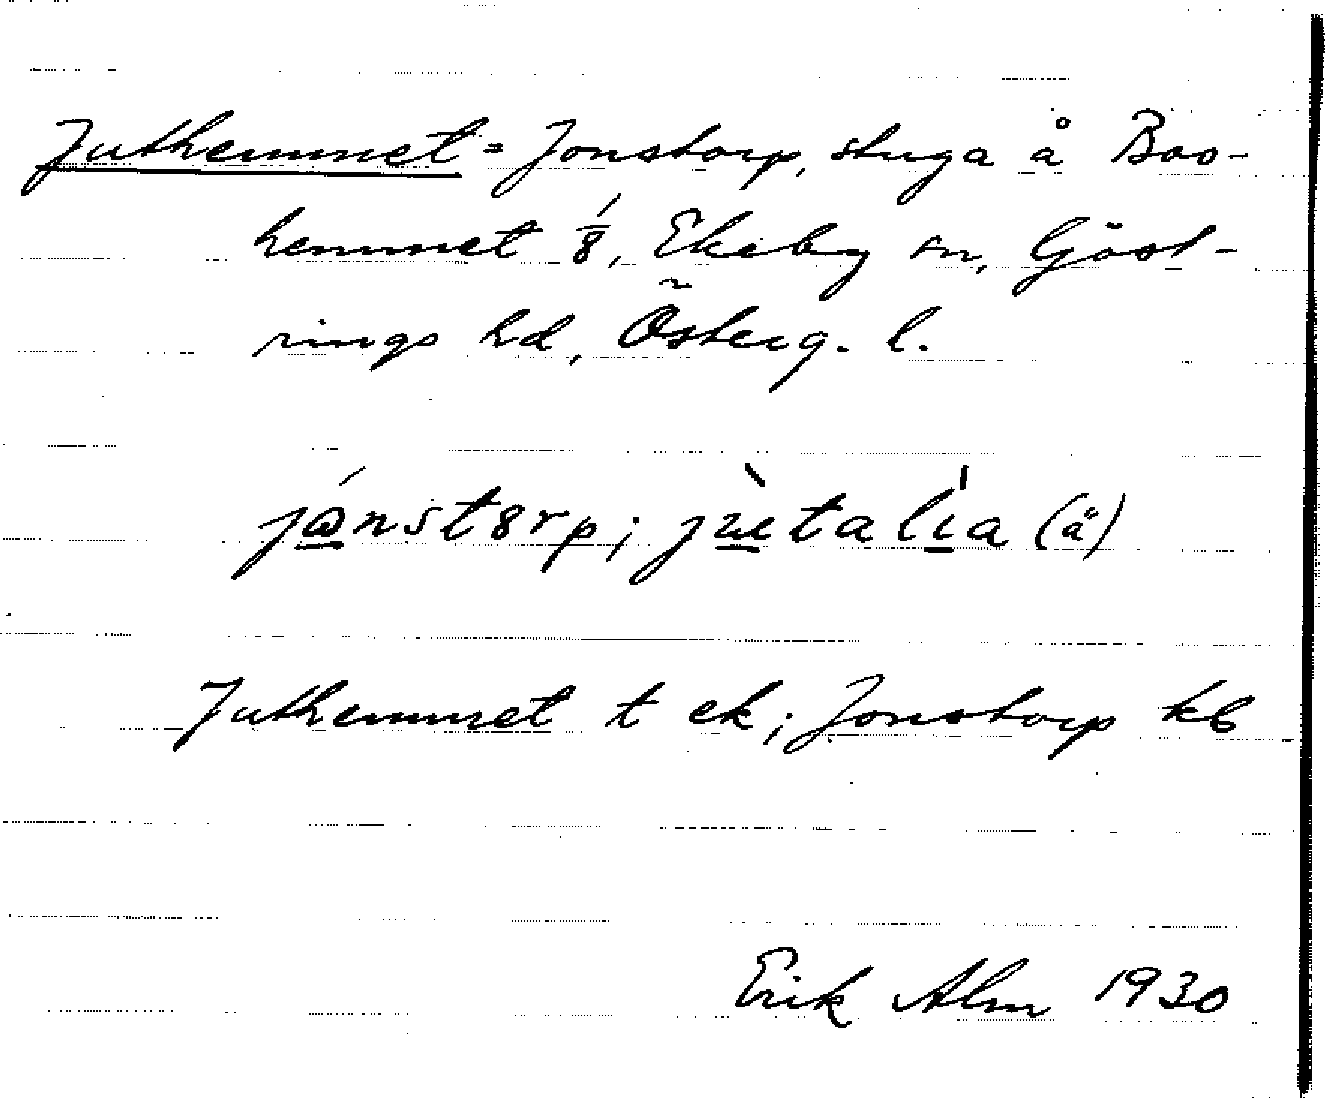 Juthemmet = Jonstorp, stuga å Boo-
hemmet 1/8, Ekeby sn, Göst-
rings hd, Österg. l.
jónstorp; jùtalìa (ä)
Juthemmet t ek; Jonstorp kb
Erik Alm 1930